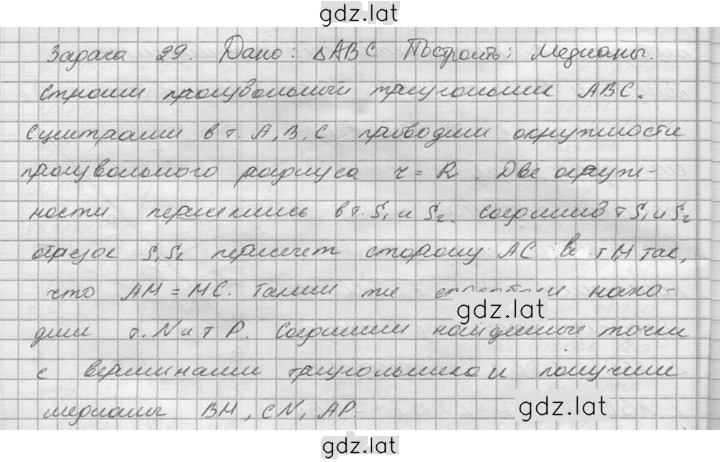 gdz.lat
Задача 29. Дано: △ABC Построить: Медианы.
Строим произвольный треугольник ABC.
С центрами в т. A, B, C проводим окружности
произвольного радиуса r = R. Две окруж-
ности пересеклись в т. S₁ и S₂. Соединив т S₁ и S₂
отрезок S₁S₂ пересечет сторону AC в т M так,
что AM = MC. Таким же способом нахо-
gdz.lat
дим т. N и т P. Соединим найденные точки
с вершинами треугольника и получим
медианы BM, CN, AP.
gdz.lat
gdz.lat